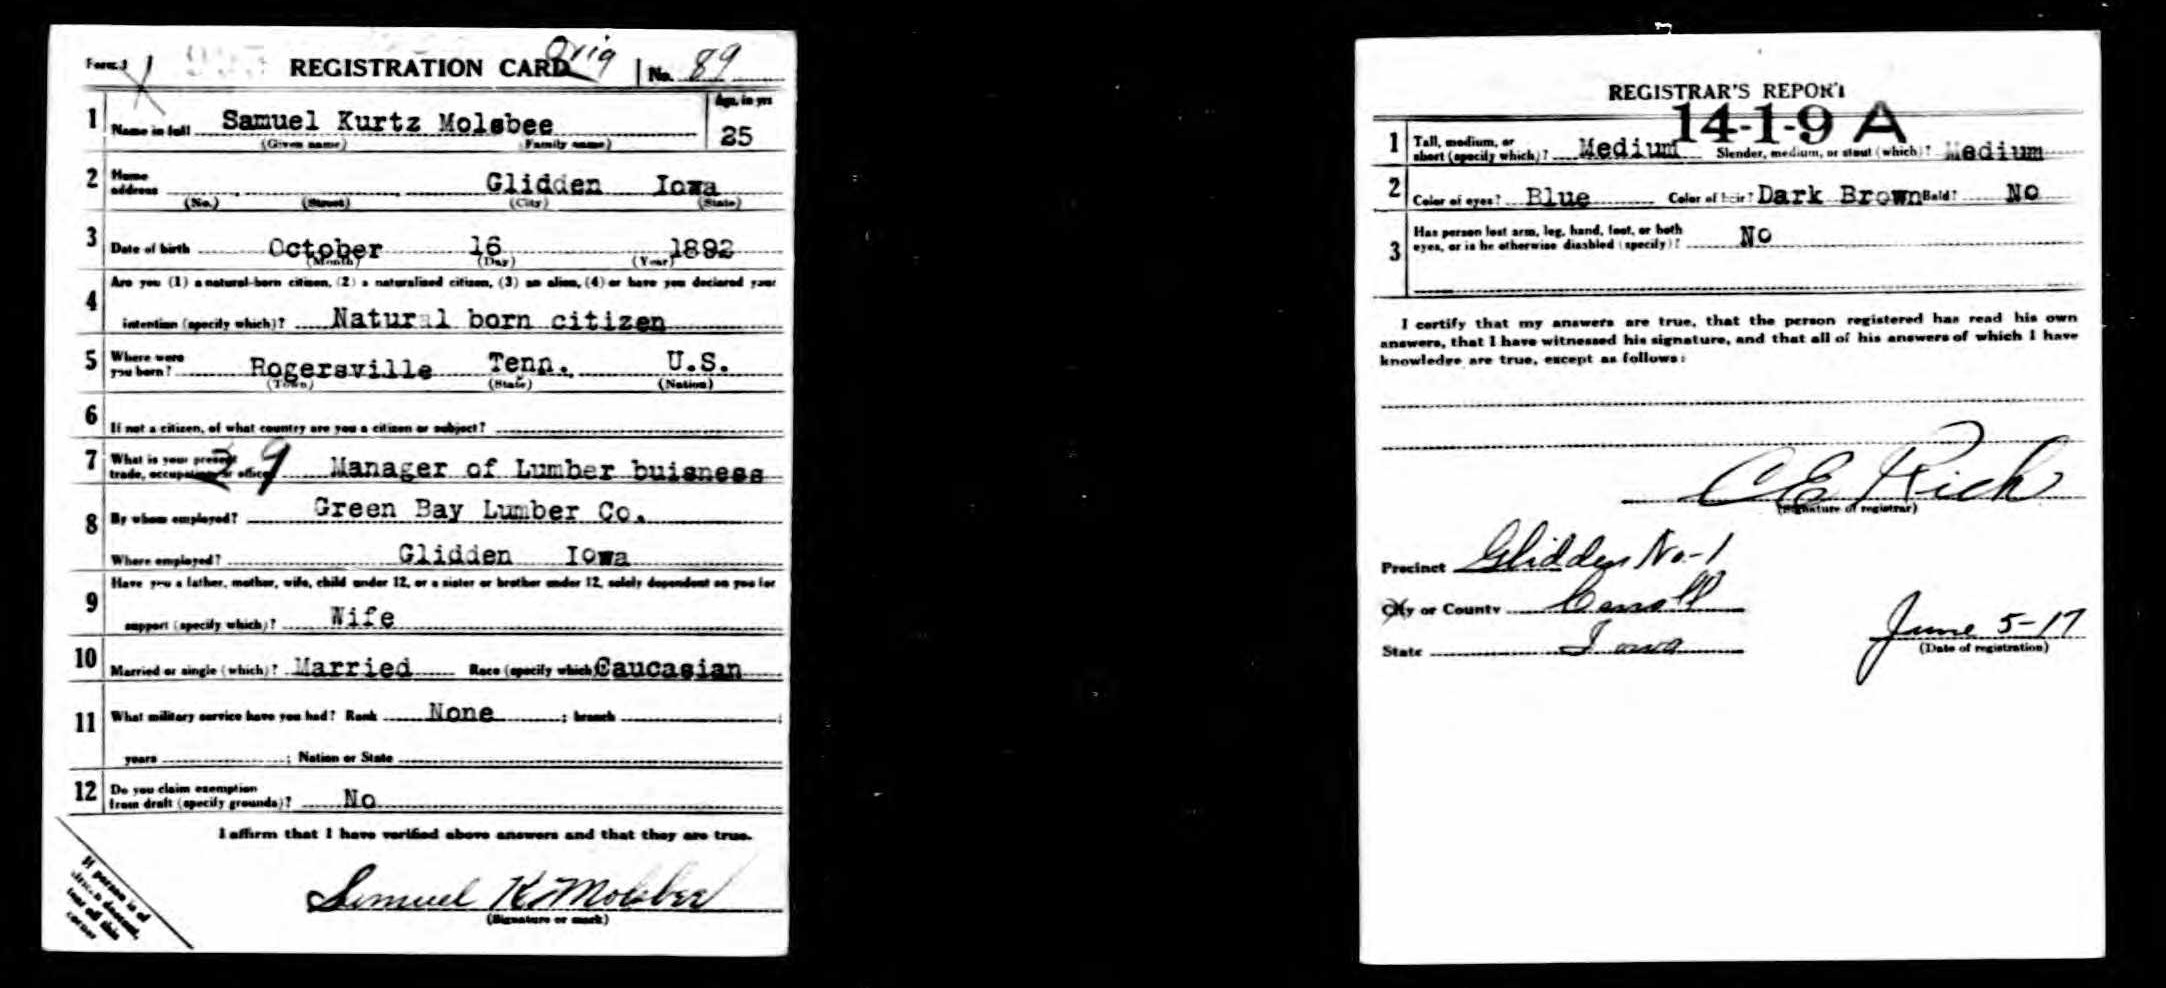 Form 1 REGISTRATION CARD Orig No. 89
1 Name in full Samuel Kurtz Molsbee Age, in yrs
(Given name) (Family name) 25
2 Home address Glidden Iowa
(No.) (Street) (City) (State)
3 Date of birth October 16 1892
(Month) (Day) (Year)
4 Are you (1) a natural-born citizen, (2) a naturalized citizen, (3) an alien, (4) or have you declared your
intention (specify which)? Natural born citizen
5 Where were you born? Rogersville Tenn. U.S.
(Town) (State) (Nation)
6 If not a citizen, of what country are you a citizen or subject?
7 What is your present
trade, occupation or office? 29 Manager of Lumber buisness
8 By whom employed? Green Bay Lumber Co.
Where employed? Glidden Iowa
9 Have you a father, mother, wife, child under 12, or a sister or brother under 12, solely dependent on you for
support (specify which)? Wife
10 Married or single (which)? Married Race (specify which) Caucasian
11 What military service have you had? Rank None ; branch ;
years ; Nation or State
12 Do you claim exemption
from draft (specify grounds)? No
I affirm that I have verified above answers and that they are true.
Samuel K. Molsbee
(Signature or mark)
If person is of
African descent,
tear off this
corner
REGISTRAR'S REPORT
14-1-9 A
1 Tall, medium, or
short (specify which)? Medium Slender, medium, or stout (which)? Medium
2 Color of eyes? Blue Color of hair? Dark Brown Bald? No
3 Has person lost arm, leg, hand, foot, or both
eyes, or is he otherwise disabled (specify)? No
I certify that my answers are true, that the person registered has read his own
answers, that I have witnessed his signature, and that all of his answers of which I have
knowledge are true, except as follows:
C E Rich
(Signature of registrar)
Precinct Glidden No-1
City or County Carroll
State Iowa
June 5-17
(Date of registration)